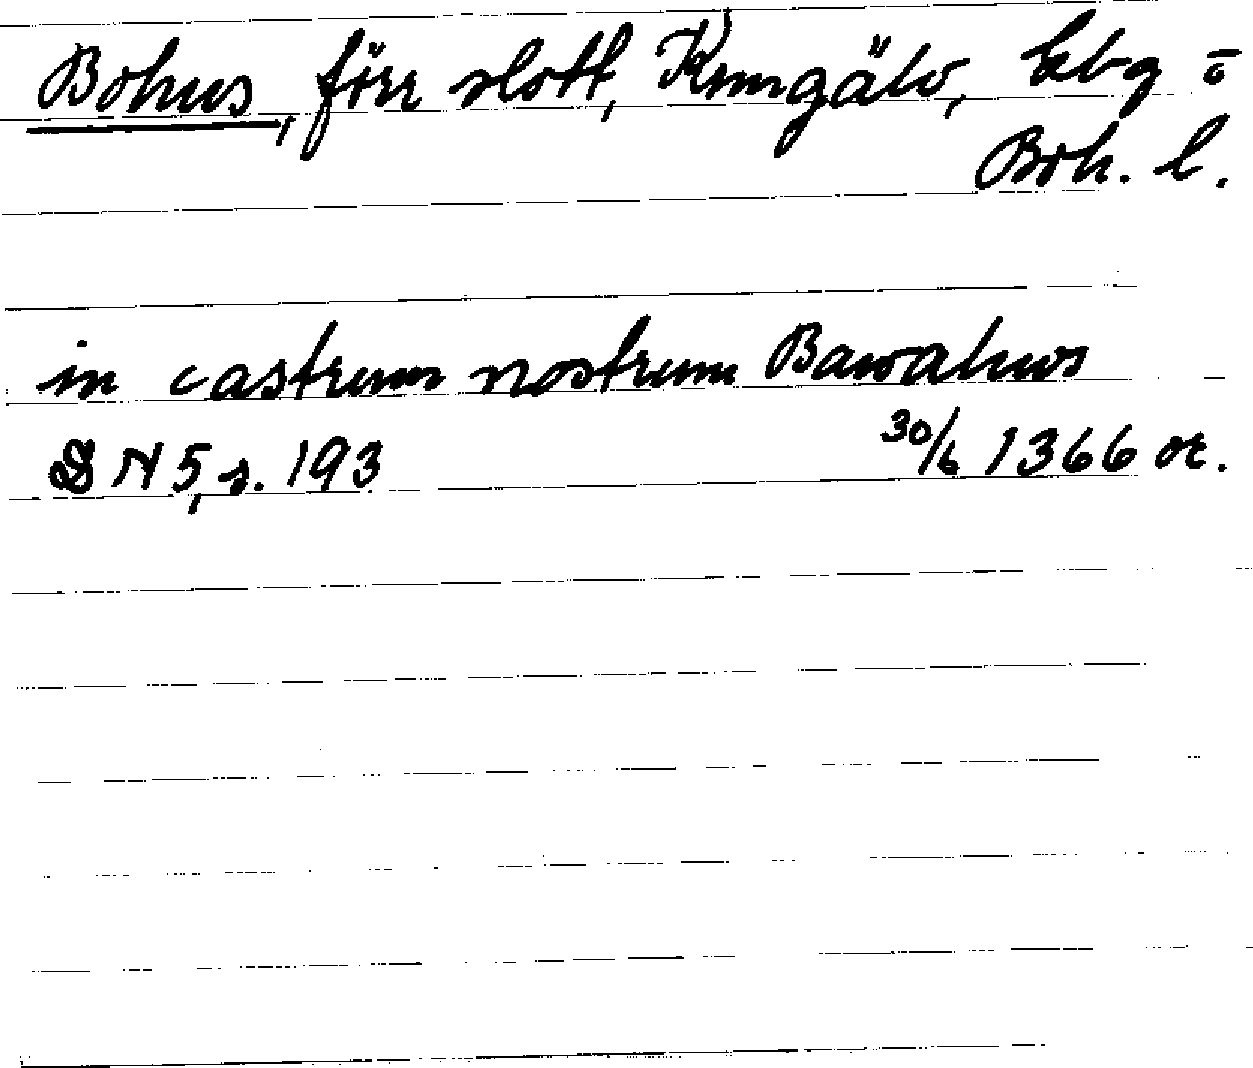 Bohus, förr slott, Kungälv, kbg o
Boh. l.
in castrum nostrum Bawahus
DN 5, s. 193 30/6 1366 or.